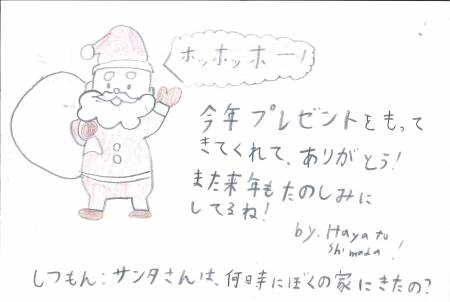 ホッホッホー!
今年プレゼントをもって
きてくれて、ありがとう!
また来年もたのしみに
してるね!
by. Hayato
Shimada!
しつもん:サンタさんは、何日時にぼくの家にきたの?